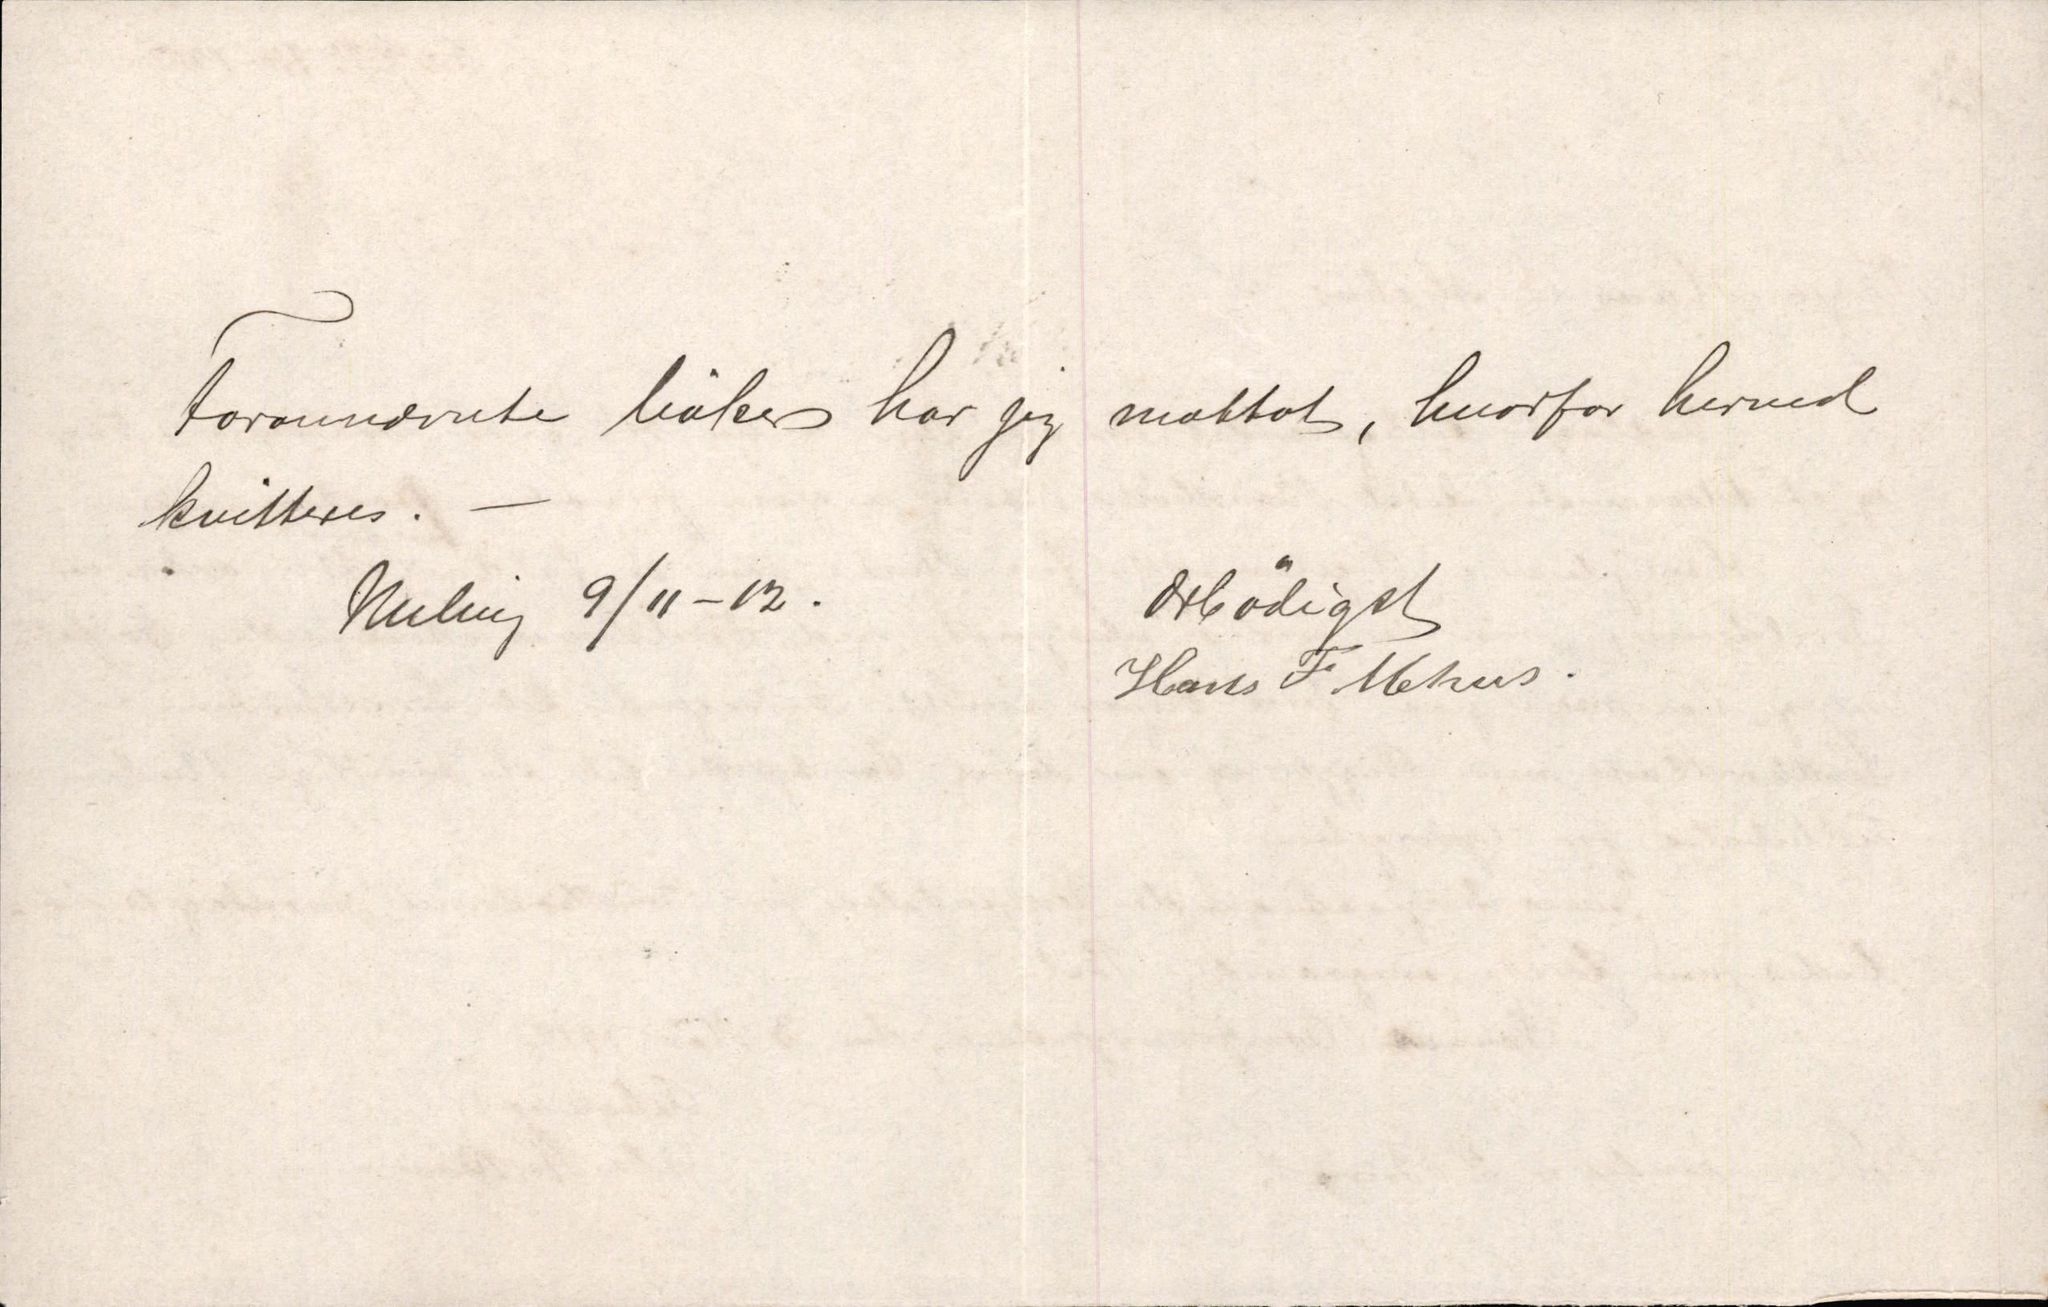 Forannævnte böker har jeg mottat, hvorfor herved
kvitteres. —
Meling 9/11-12.
Ærbödigst
Hans F Mehus.